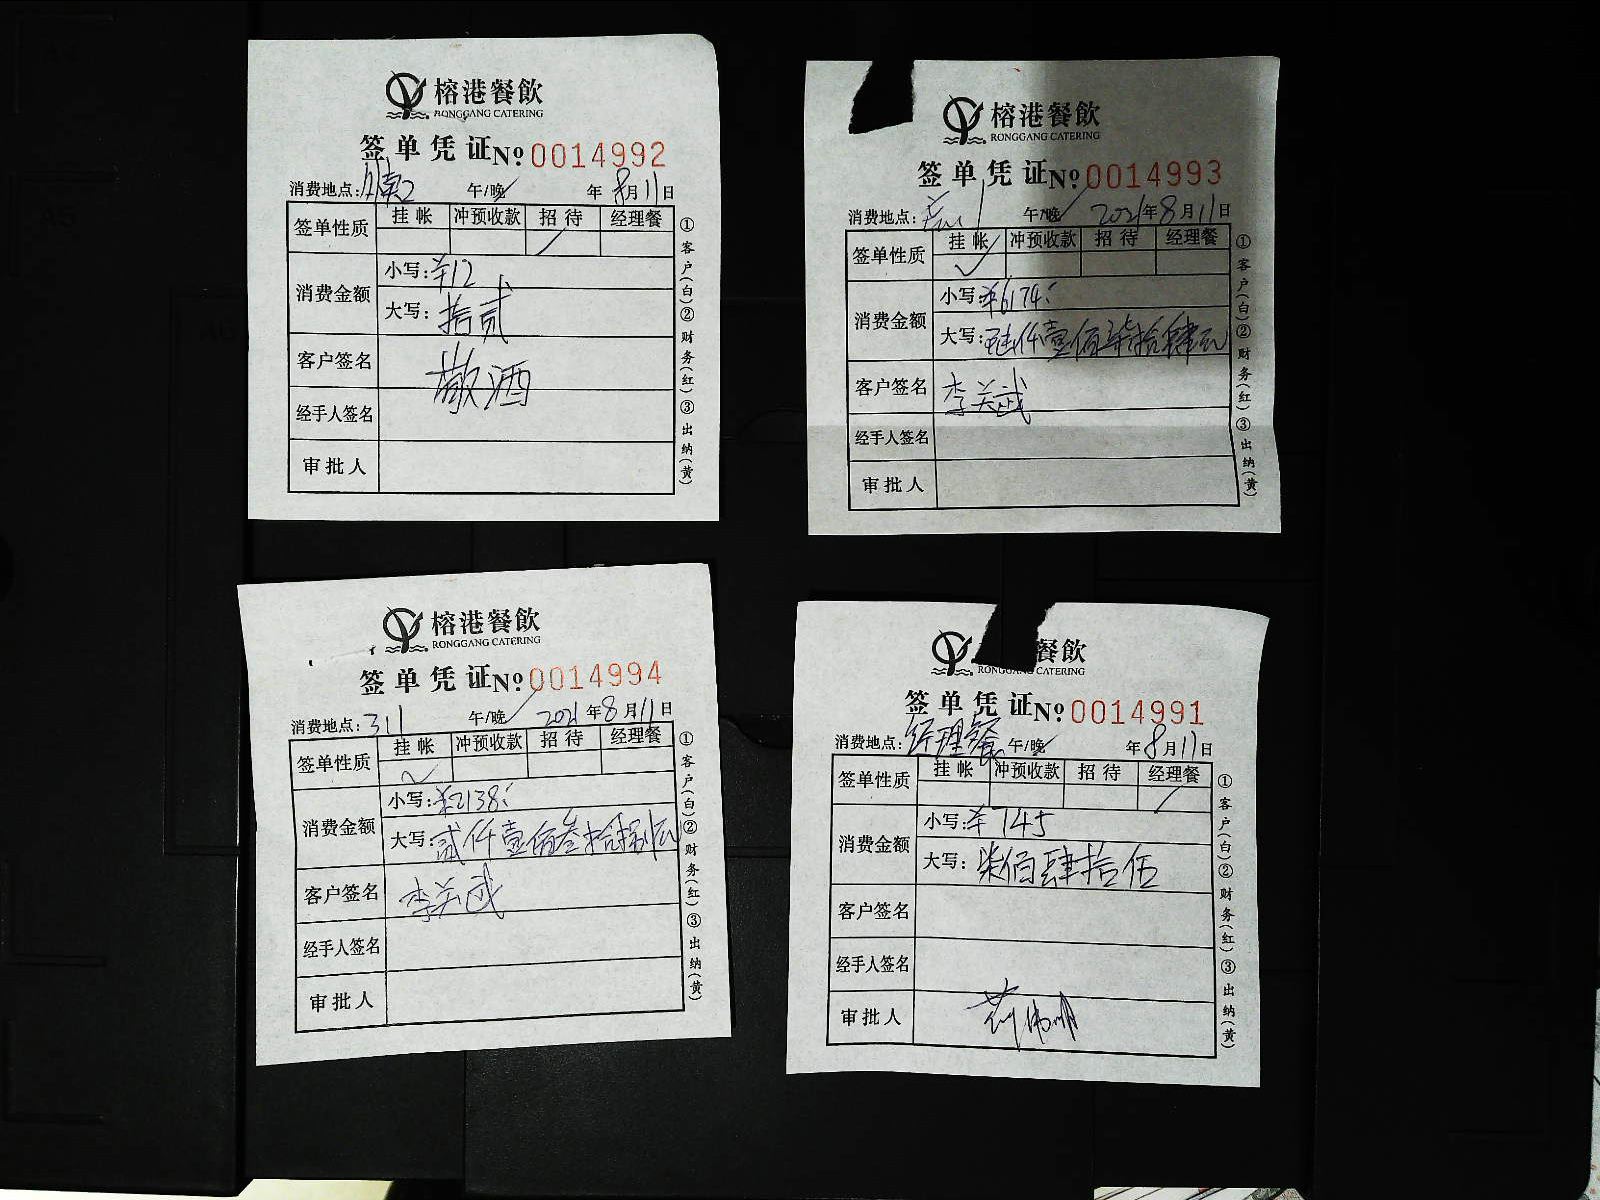 榕港餐飲
RONGGANG CATERING
签单凭证№0014992
消费地点: 午/晚 年8月11日
签单性质 挂帐 冲预收款 招待 经理餐
消费金额 小写:¥12
大写:拾贰
客户签名 散酒
经手人签名
审批人
①客户(白)②财务(红)③出纳(黄)
榕港餐飲
RONGGANG CATERING
签单凭证№0014993
消费地点: 午/晚 2021年8月11日
签单性质 挂帐 冲预收款 招待 经理餐
消费金额 小写:¥6174
大写:陆仟壹佰柒拾肆元
客户签名 李关武
经手人签名
审批人
①客户(白)②财务(红)③出纳(黄)
榕港餐飲
RONGGANG CATERING
签单凭证№0014994
消费地点:311 午/晚 2021年8月11日
签单性质 挂帐 冲预收款 招待 经理餐
消费金额 小写:¥2138
大写:贰仟壹佰叁拾捌元
客户签名 李关武
经手人签名
审批人
①客户(白)②财务(红)③出纳(黄)
餐飲
RONGGANG CATERING
签单凭证№0014991
消费地点:经理餐 午/晚 年8月11日
签单性质 挂帐 冲预收款 招待 经理餐
消费金额 小写:¥745
大写:柒佰肆拾伍
客户签名
经手人签名
审批人
①客户(白)②财务(红)③出纳(黄)